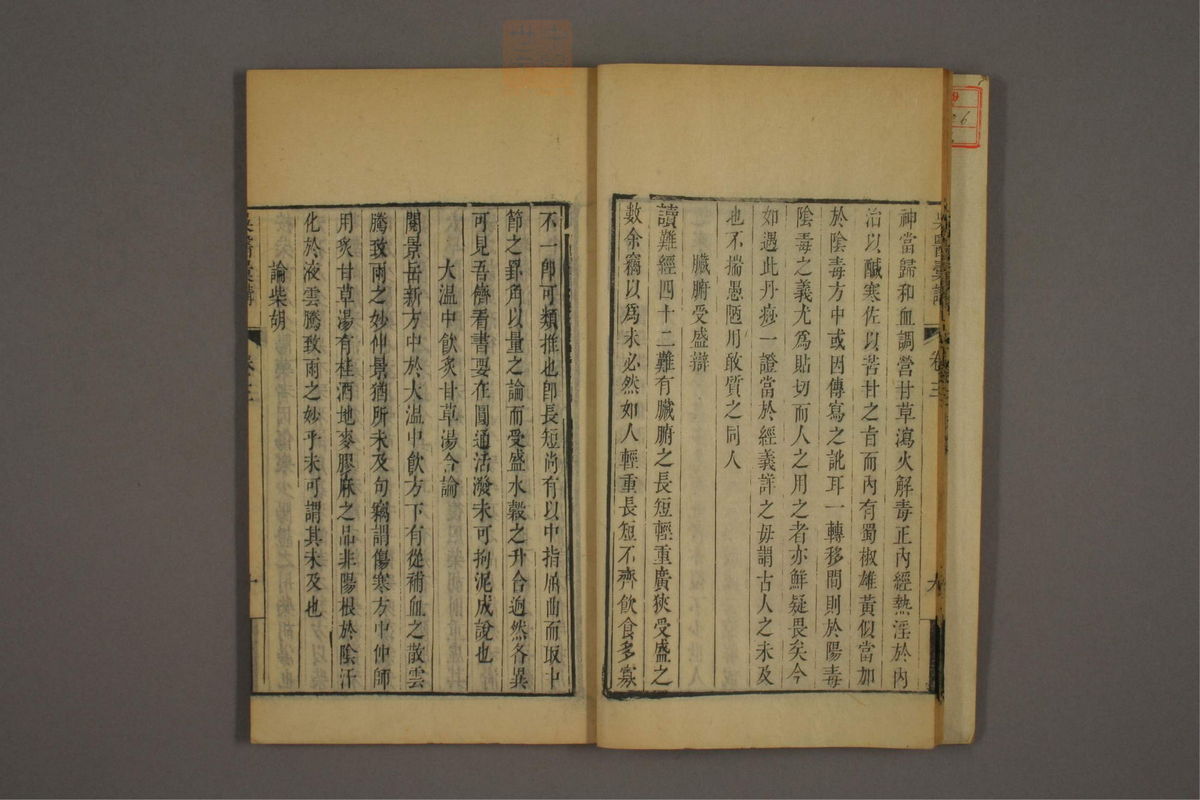 神當歸和血調營甘草瀉火解毒正內經熱淫於內
治以鹹寒佐以苦甘之旨而內有蜀椒雄黃似當加
於陰毒方中或因傳寫之訛耳一轉移間則於陽毒
陰毒之義尤爲貼切而人之用之者亦鮮疑畏矣今
如遇此丹痧一證當於經義詳之毋謂古人之未及
也不揣愚陋用敢質之同人
臟腑受盛辯
讀難經四十二難有臟腑之長短輕重廣狹受盛之
數余竊以爲未必然如人輕重長短不齊飲食多寡
不一卽可類推也卽長短尚有以中指屈曲而取中
節之罅角以量之論而受盛水穀之升合逈然各異
可見吾儕看書要在圓通活潑未可拘泥成說也
大温中飲炙甘草湯合論
閱景岳新方中於大温中飲方下有從補血之散雲
騰致雨之妙仲景猶所未及句竊謂傷寒方中仲師
用炙甘草湯有桂酒地麥膠麻之品非陽根於陰汗
化於液雲騰致雨之妙乎未可謂其未及也
論柴胡
吳醫彙講
卷三
十